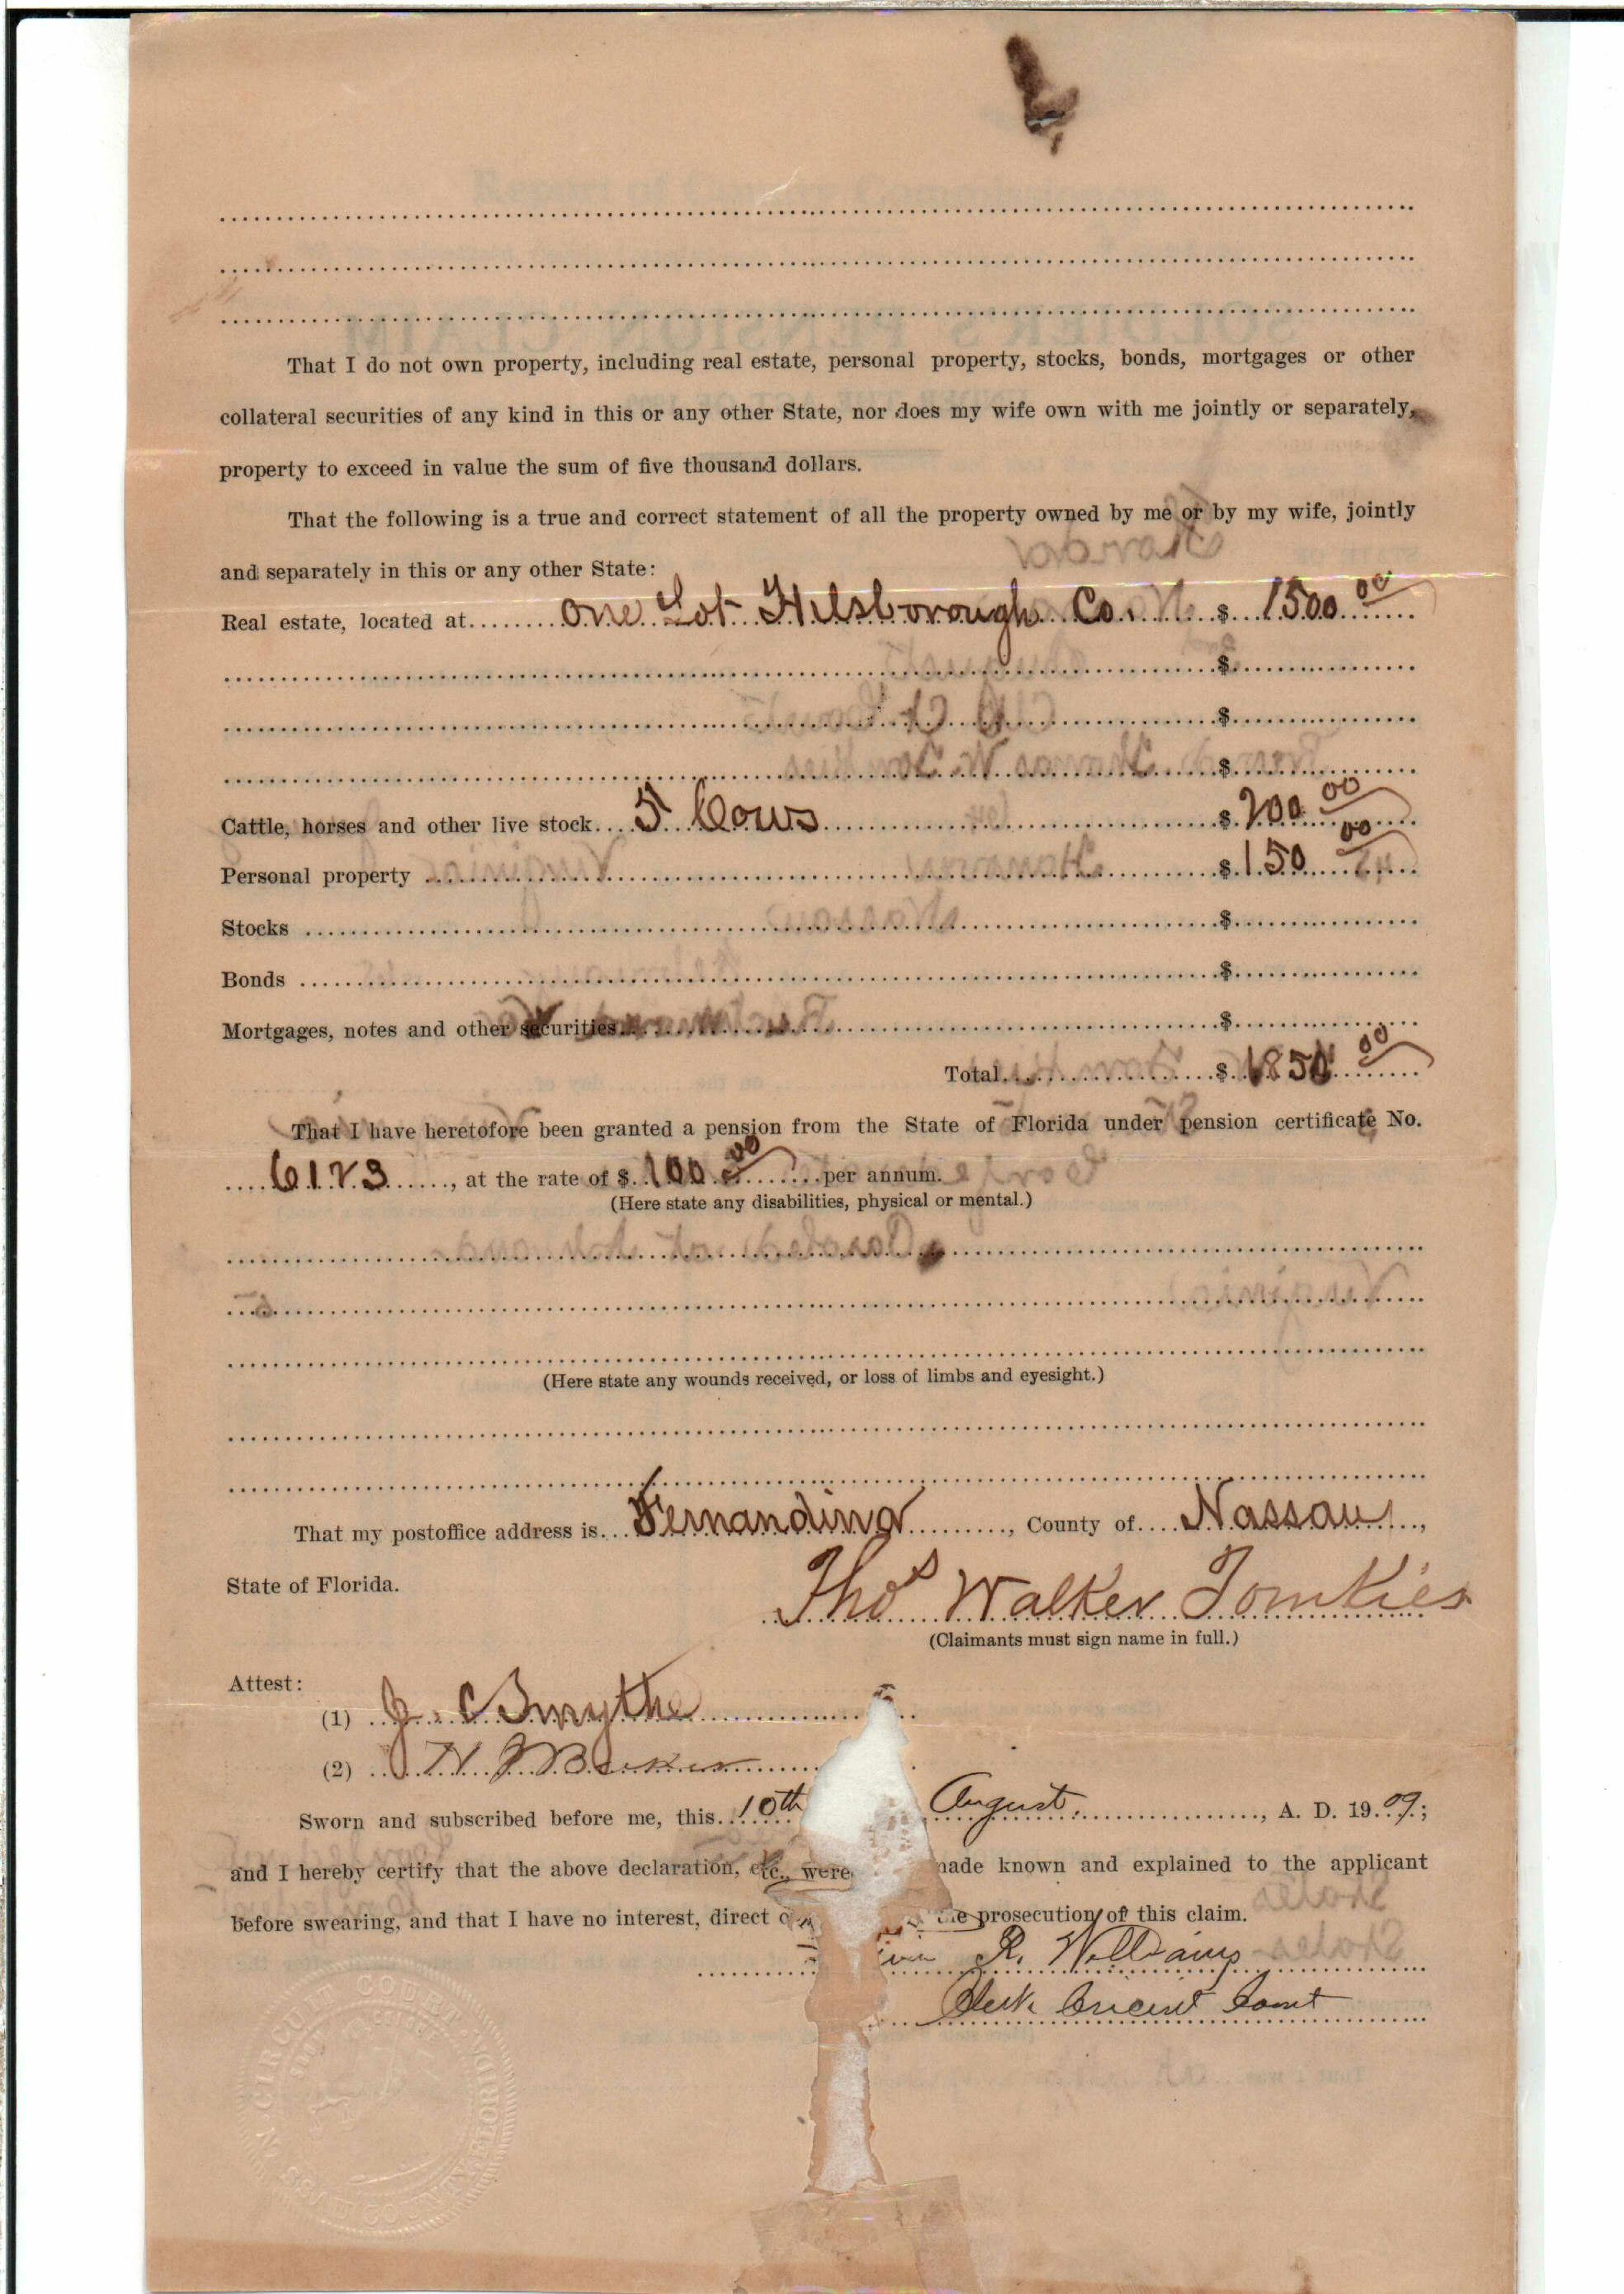 That I do not own property, including real estate, personal property, stocks, bonds, mortgages or other
collateral securities of any kind in this or any other State, nor does my wife own with me jointly or separately,
property to exceed in value the sum of five thousand dollars.
That the following is a true and correct statement of all the property owned by me or by my wife, jointly
and separately in this or any other State:
Real estate, located at One Lot Hilsborough Co. $ 1500 00
$
$
$
Cattle, horses and other live stock 5 Cows $ 200 00
Personal property $ 150 00
Stocks $
Bonds $
Mortgages, notes and other securities $
Total $ 1850 00
That I have heretofore been granted a pension from the State of Florida under pension certificate No.
6123, at the rate of $ 100 00 per annum.
(Here state any disabilities, physical or mental.)
(Here state any wounds received, or loss of limbs and eyesight.)
That my postoffice address is Fernandina, County of Nassau,
State of Florida.
Thos Walker Tomkies
(Claimants must sign name in full.)
Attest:
(1) J. C Smythe
(2) N J Baker
Sworn and subscribed before me, this 10th August, A. D. 1909;
and I hereby certify that the above declaration, etc., were made known and explained to the applicant
before swearing, and that I have no interest, direct the prosecution of this claim.
R. Williams
Clerk Circuit Court
CIRCUIT COURT
NASSAU COUNTY FLORIDA